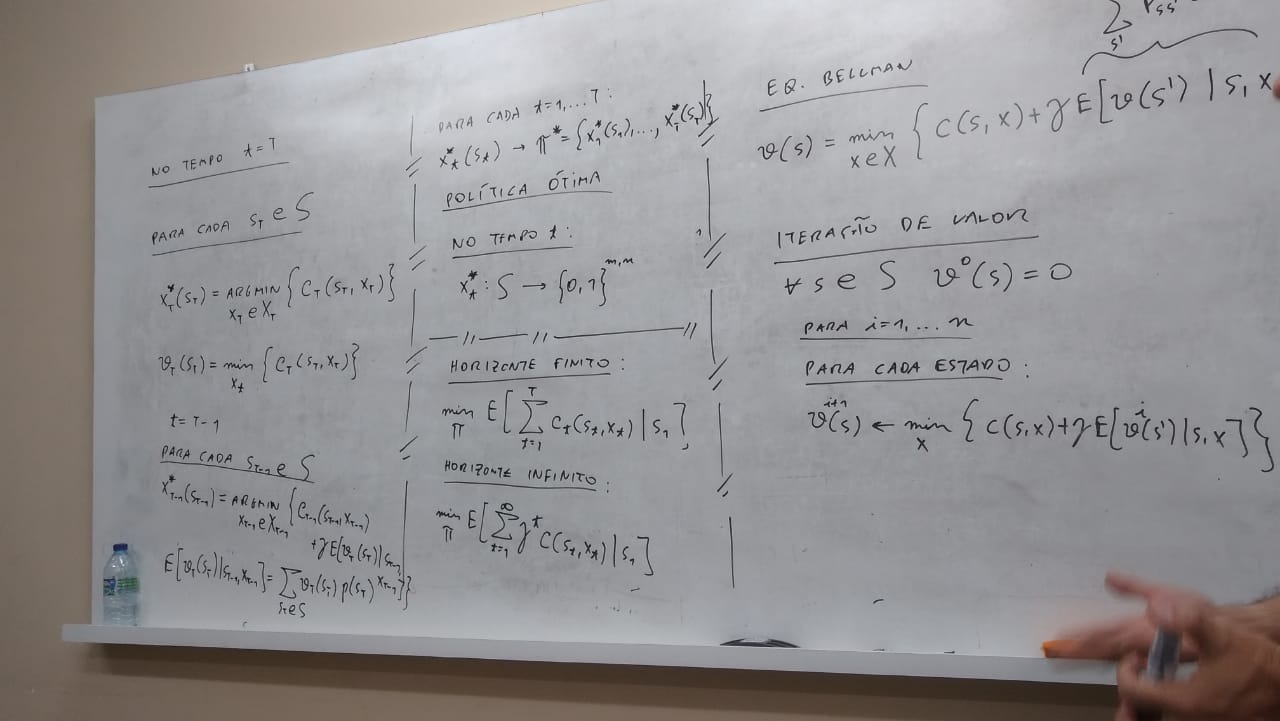 NO TEMPO t=T
PARA CADA S_T e S
x*_T(S_T) = ARGMIN { C_T(S_T, x_T) }
x_T e X_T
v_T(S_T) = min { C_T(S_T, x_T) }
x_t
t = T-1
PARA CADA S_{T-1} e S
x*_{T-1}(S_{T-1}) = ARGMIN { C_{T-1}(S_{T-1}, x_{T-1})
x_{T-1} e X_{T-1}
+ γE[v_T(S_T)|S_{T-1}
E[v_T(S_T)|S_{T-1}, x_{T-1}] = ∑ v_T(S_T) p(S_T)^{x_{T-1}}]}
S_T e S
PARA CADA t=1,...T:
x*_t(S_t) → π* = {x*_1(S_1),..., x*_T(S_T)}
POLÍTICA ÓTIMA
NO TEMPO t:
x*_t : S → {0,1}^{m,n}
HORIZONTE FINITO:
min E[ ∑ C_t(S_t, x_t) | S_1 ]
π t=1 T
HORIZONTE INFINITO:
min E[ ∑ γ^t C(S_t, x_t) | S_1 ]
π t=1 ∞
∑ P_{SS'}
S'
EQ. BELLMAN
v(s) = min { C(s, x) + γ E[v(s') | s, x
x e X
ITERAÇÃO DE VALOR
∀ s e S v⁰(s) = 0
PARA i=1,...n
PARA CADA ESTADO:
v^{i+1}(s) ← min { C(s,x) + γE[v^i(s')|s,x]}
x